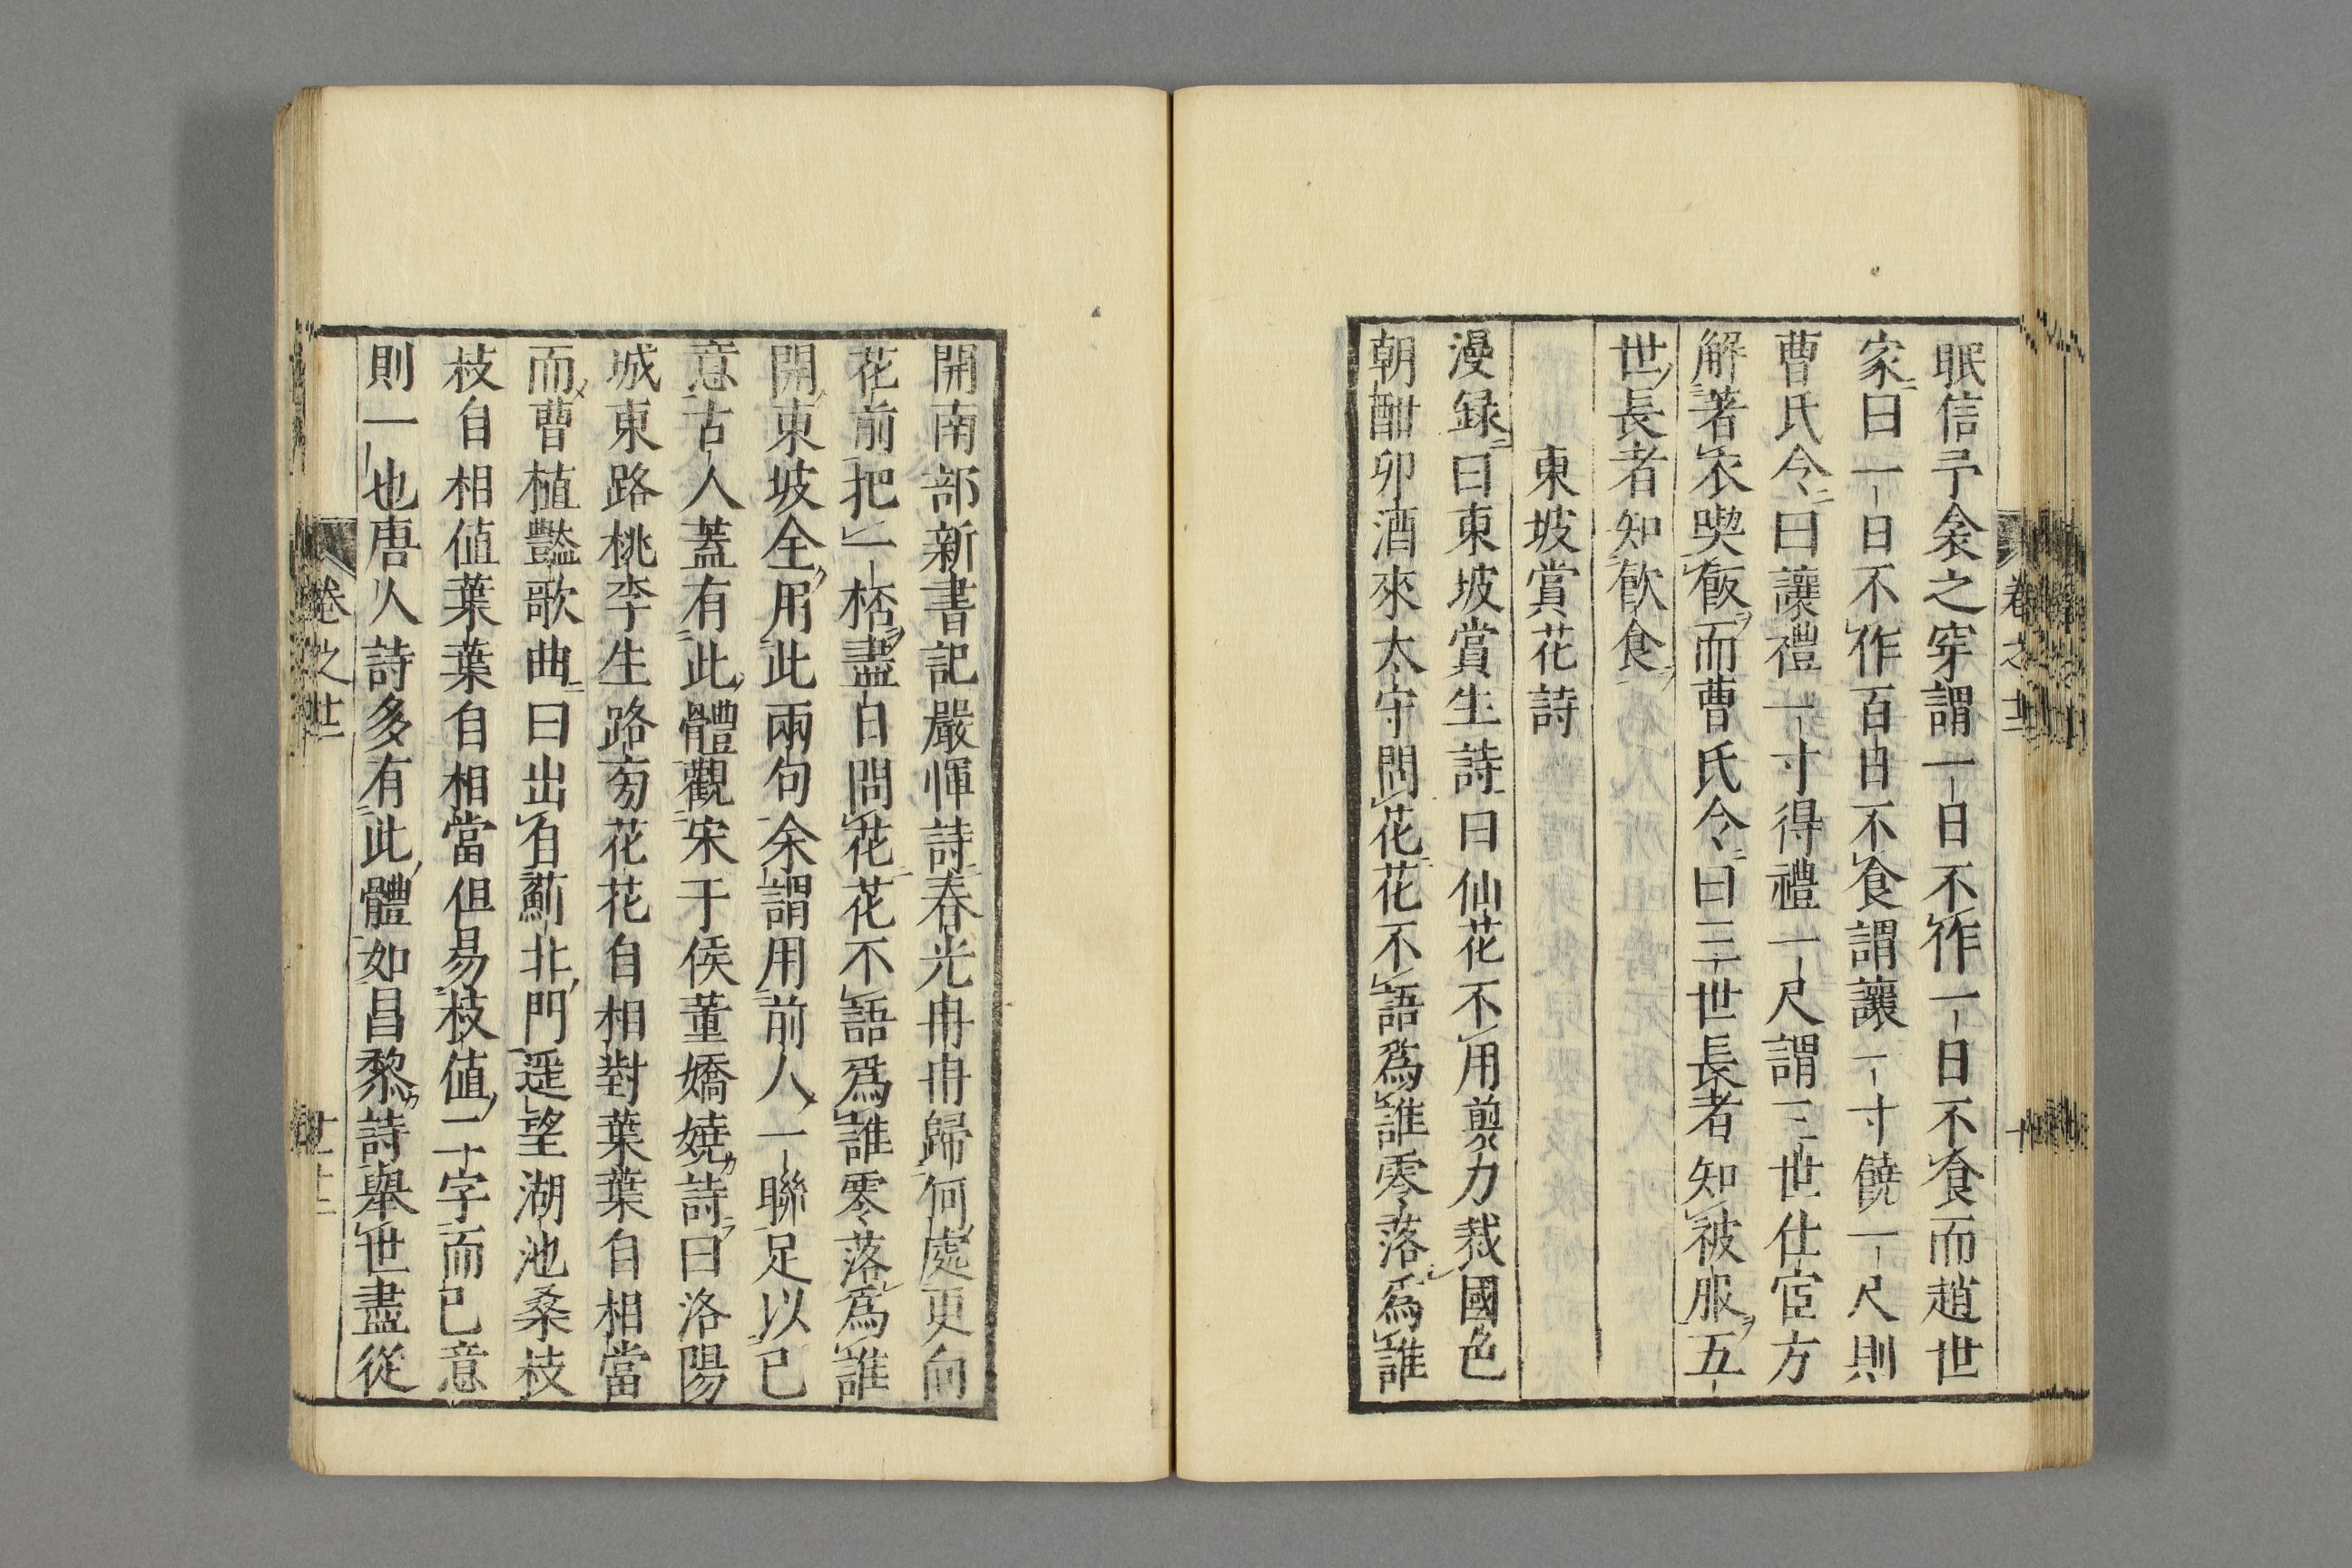 眠信乎衾之穿謂一日不作一日不食而趙世
家曰一日不作百日不食謂讓一寸饒一尺則
曹氏令曰讓禮一寸得禮一尺謂三世仕宦方
解著衣喫飯而曹氏令曰三世長者知被服五
世長者知飲食
東坡賞花詩
漫録曰東坡賞生詩曰仙花不用剪力裁國色
朝酣卯酒來太守問花花不語爲誰零落爲誰
開南部新書記嚴惲詩春光冉冉歸何處更向
花前把一桮盡日問花花不語爲誰零落爲誰
開東坡全用此兩句余謂用前人一聯足以已
意古人蓋有此體觀宋于侯董嬌嬈詩曰洛陽
城東路桃李生路旁花花自相對葉葉自相當
而曹植豔歌曲曰出自薊北門遥望湖池桑枝
枝自相値葉葉自相當但易枝値二字而已意
則一也唐人詩多有此體如昌黎詩舉世盡從
卷之廿二